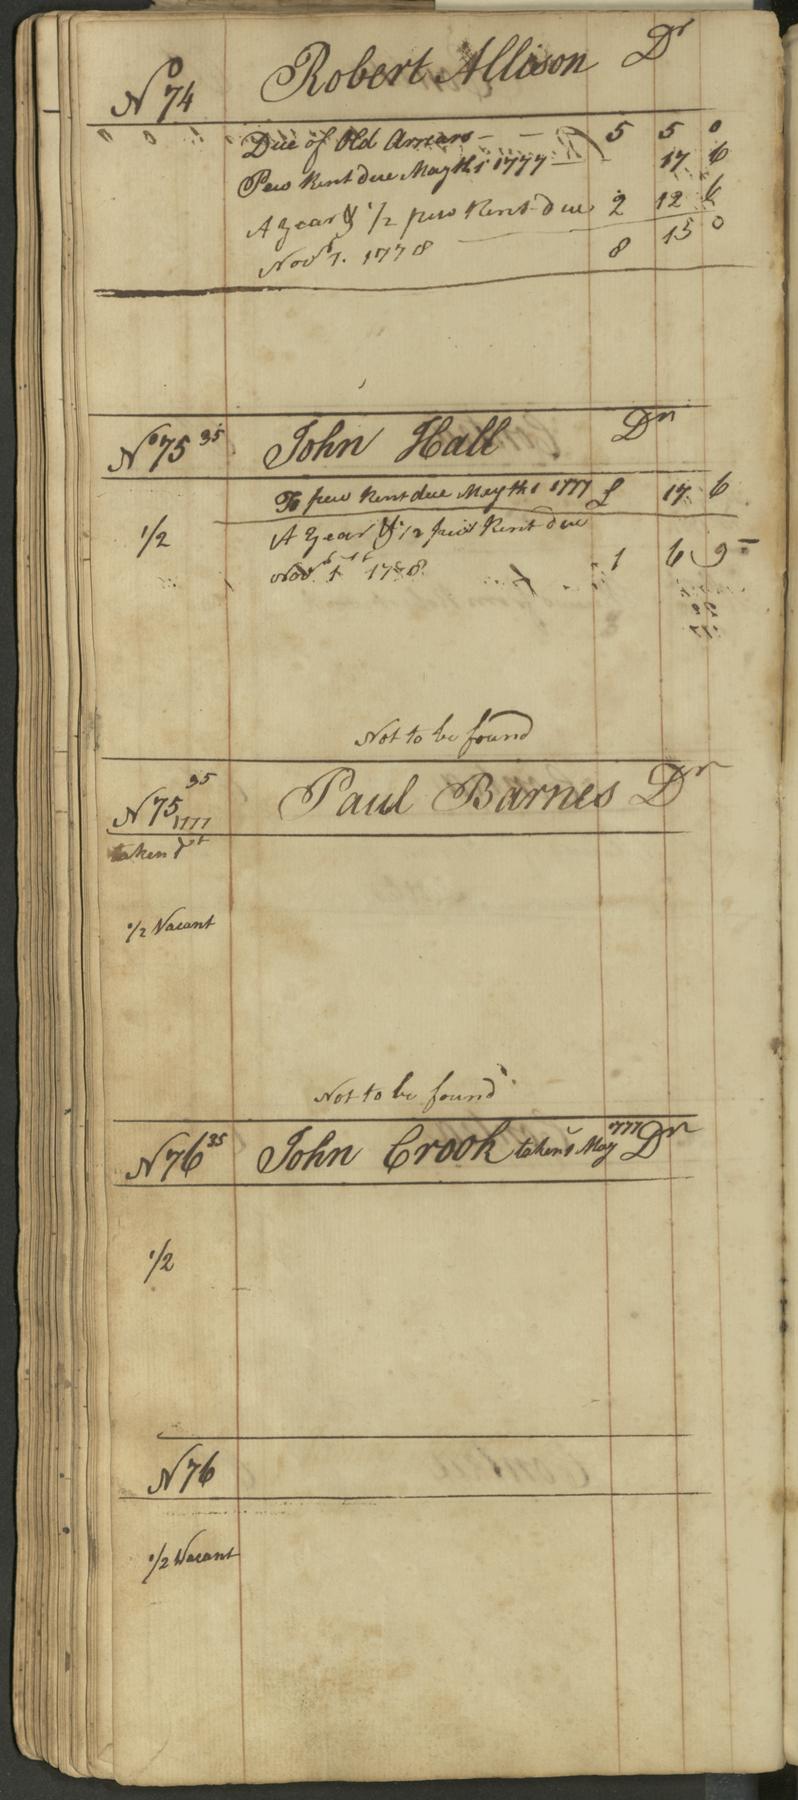 No 74 Robert Allison Dr
Due of Old Arrears 5 5 0
Pew Rent due May th 1 1777 17 6
A year & 1/2 pew Rent due 2 12 6
Novr 1. 1778 8 15 0
No 75 35 John Hall Dr
To pew Rent due May th 1 1777 £ 17 6
1/2 A year & 1/2 pew Rent due
Novr 1st 1778 1 6 9
Not to be found
N 75 35 Paul Barnes Dr
1777
taken
1/2 Vacant
Not to be found
N 76 35 John Crook taken 1 May 1777 Dr
1/2
N 76
1/2 Vacant